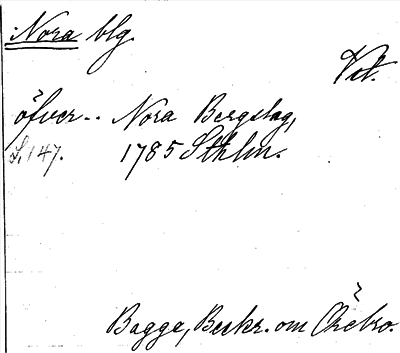 Nora blg.
Vit.
öfver.. Nora Bergslag,
S. 147. 1785 Sthlm.
Bagge, Beskr. om Örebro.